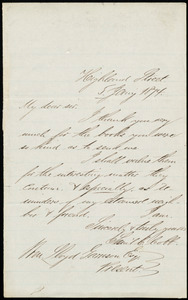 Highland Street
5 Jany 1874
My dear sir,
I thank you very
much for the books you were
so kind as to send me.
I shall value them
for the interesting matter they
contain & especially as
reminders of my esteemed neigh-
bor & friend. I am
Sincerely & truly yours
Wm. Lloyd Garrison Esq.